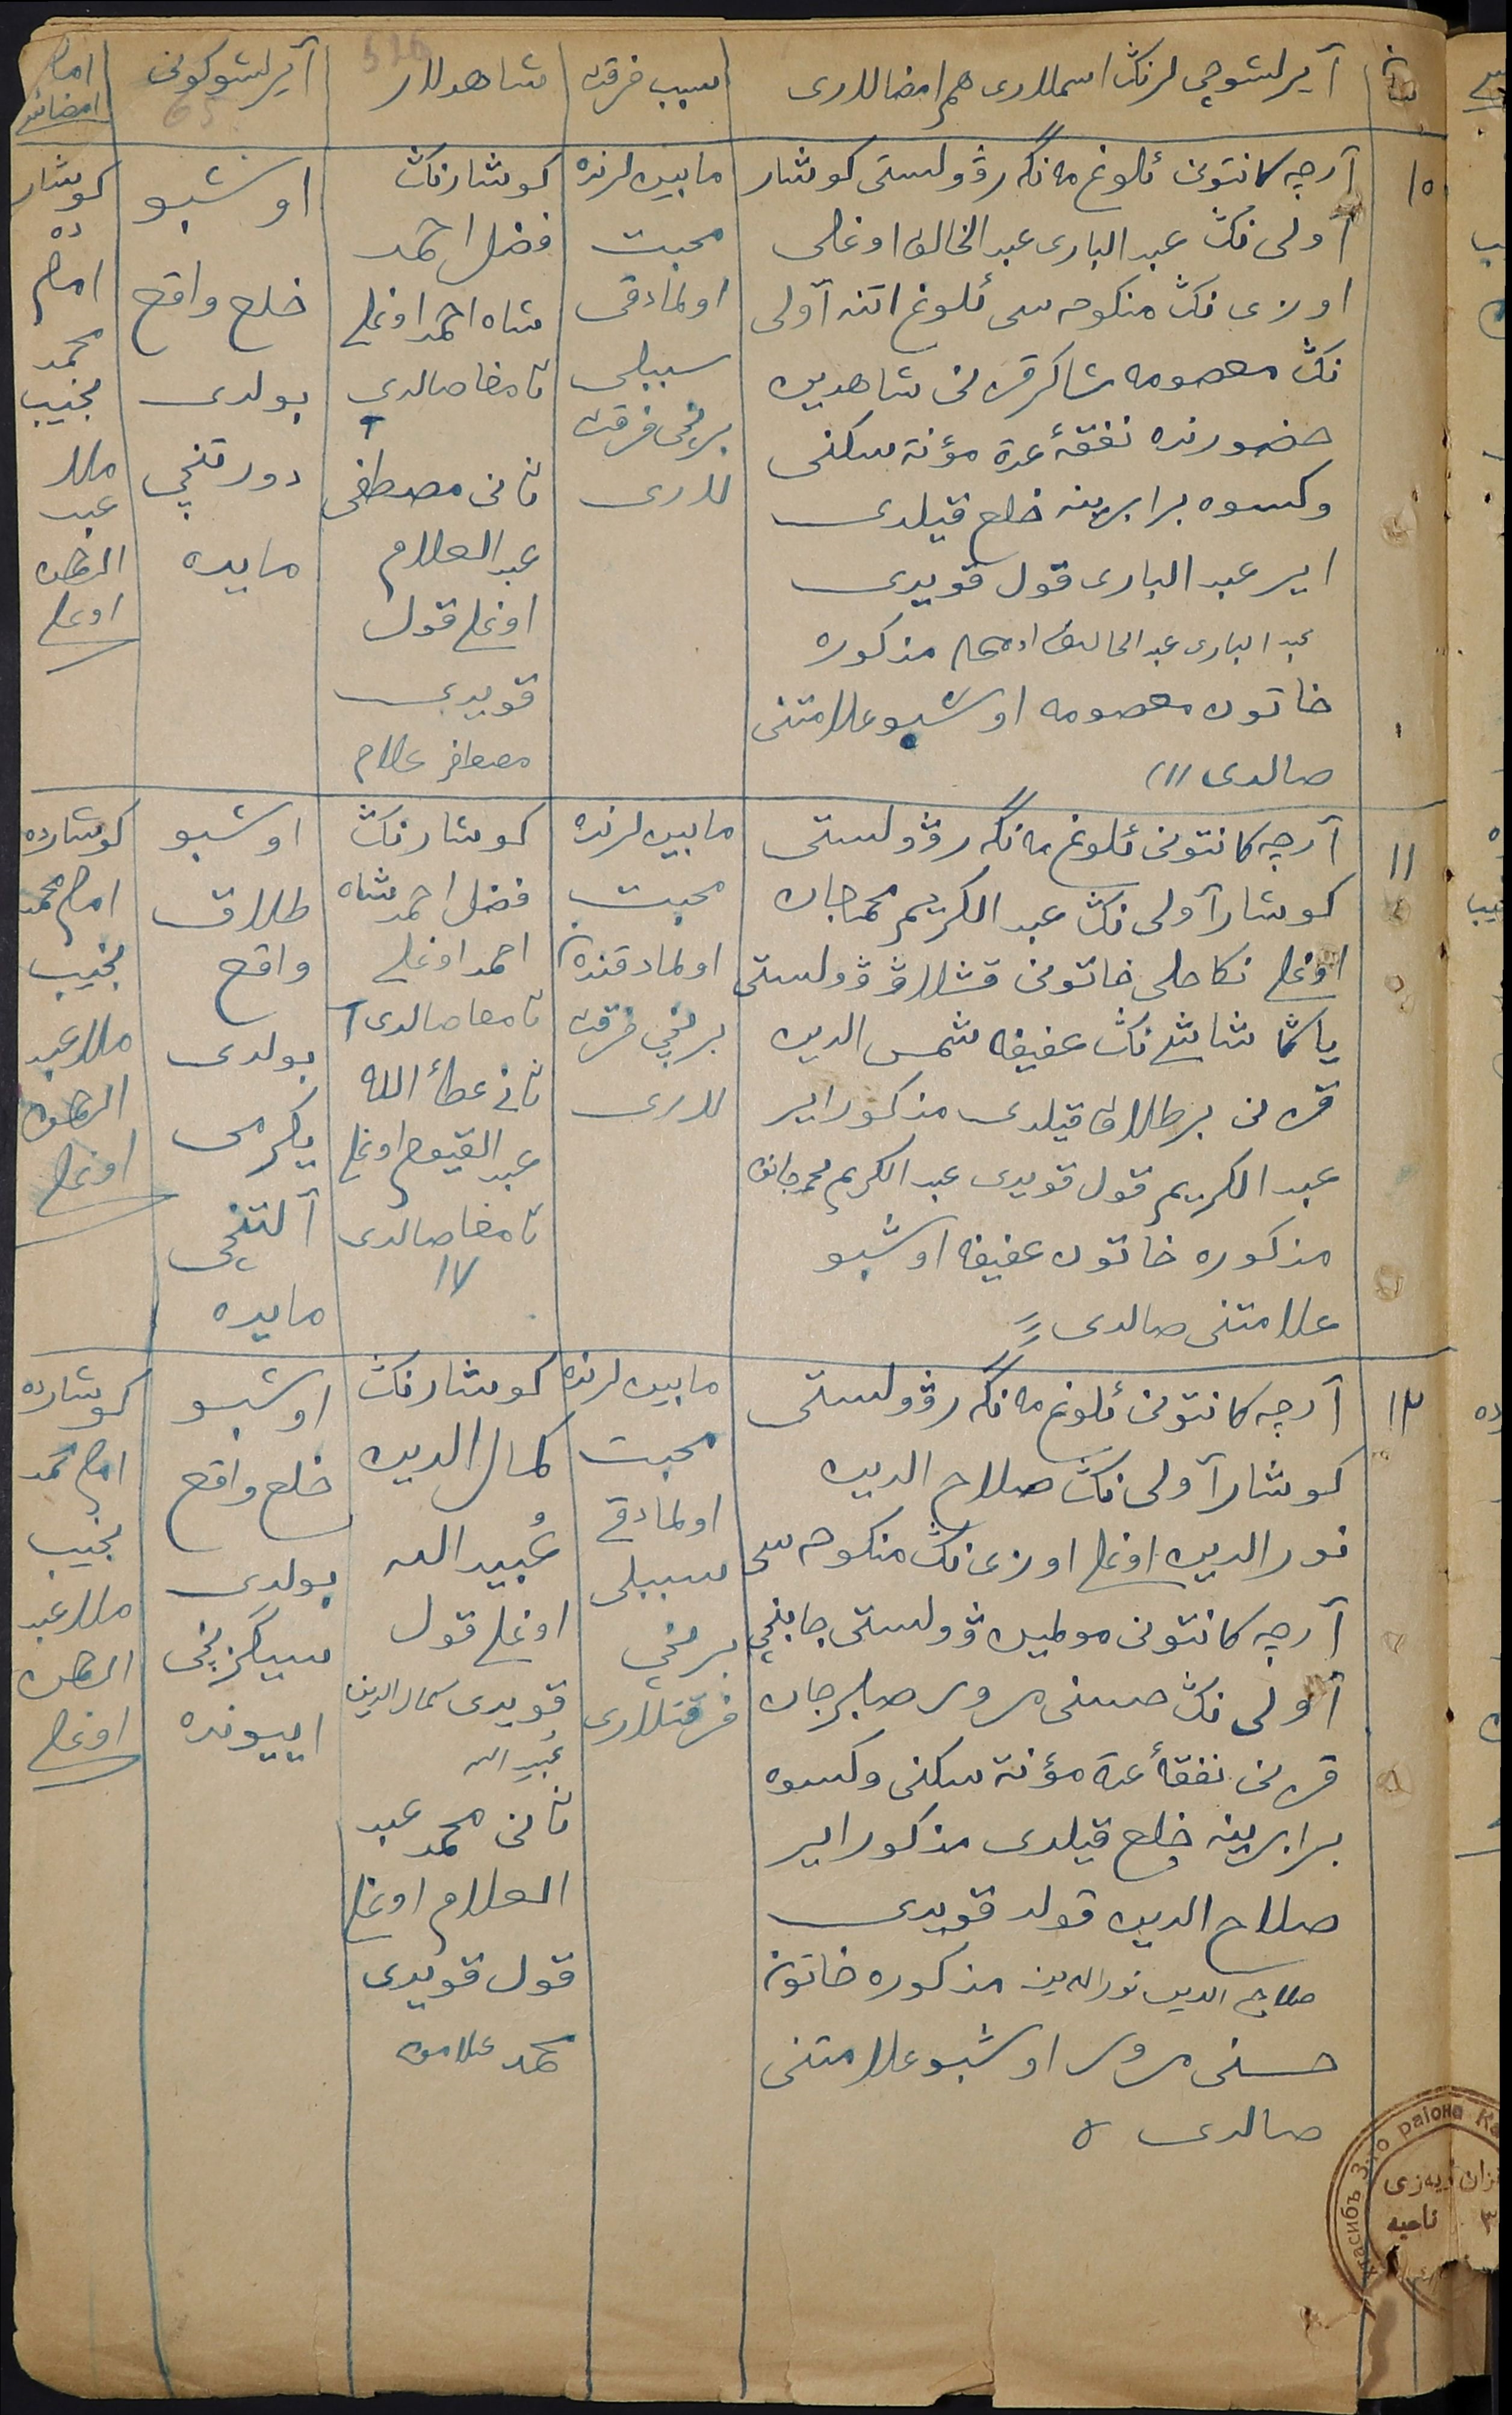 آیرلشوچی لرنڭ اسملاری هم امضالاری
سبب فرقت
شاهدلار
آیرلشو کونی
امام امضاسی
١٠
آرچه کانتونی ئلوغ مانگەر ۋولستی کوشار
آولی نڭ عبد الباری عبد الخالق اوغلی
اوزی نڭ منکوحه سی ئلوغ اتنه آولی
نڭ معصومه شاکر قزنی شاهدین
حضورنده نفقهٔ عدة مؤنة سکنی
وکسوه برابرینه خلع قیلدی
ایر عبد الباری قول قویدی
عبد الباری عبد الخالق مذکوره
خاتون معصومه اوشبو علامتنی
صالدی
مابین لرنده
محبت
اولمادقی
سببلی
برنچی فرقت
لاری
کوشارنڭ
فضل احمد
شاه احمد اوغلی
تامغا صالدی
ثانی مصطفی
عبد العلام
اوغلی قول
قویدی
اوشبو
خلع واقع
بولدی
دورتنچی
مایده
کوشار
ده
امام
محمد
نجیب
ملا
عبد
الرحمن
اوغلی
١١
آرچه کانتونی ئلوغ مانگەر ۋولستی
کوشار آولی نڭ عبد الکریم محمدجان
اوغلی نکاحلی خاتونی قشلاۋ ۋولستی
نڭ عفیفه شمس الدین
قزنی بر طلاق قیلدی مذکور ایر
عبد الکریم قول قویدی عبد الکریم محمدجان
مذکوره خاتون عفیفه اوشبو
علامتنی صالدی
مابین لرنده
محبت
اولمادقندن
برنچی فرقت
لاری
کوشارنڭ
فضل احمد شاه
احمد اوغلی
تامغا صالدی
ثانی عطأ الله
عبد القیوم اوغلی
تامغا صالدی
اوشبو
طلاق
واقع
بولدی
یکرمی
آلتنچی
مایده
کوشارده
امام محمد
نجیب
ملا عبد
الرحمن
اوغلی
١٢
آرچه کانتونی ئلوغ مانگەر ۋولستی
کوشار آولی نڭ صلاح الدین
نور الدین اوغلی اوزی نڭ منکوحه سی
آرچه کانتونی مولمین ۋولستی
آولی نڭ حسنی سرور صابرجان
قزنی نفقهٔ عدة مؤنة سکنی وکسوه
برابرینه خلع قیلدی مذکور ایر
صلاح الدین قول قویدی
صلاح الدین نورالدین مذکوره خاتون
حسنی سرور اوشبو علامتنی
صالدی
مابین لرنده
محبت
اولمادقی
سببلی
برنچی
فرقتلاری
کوشارنڭ
کمال الدین
عُبید الله
اوغلی قول
قویدی کمال الدین
عبید الله
ثانی محمد عبد
العلام اوغلی
قول قویدی
محمد
اوشبو
خلع واقع
بولدی
سیگزنچی
اییونده
کوشارده
امام محمد
نجیب
ملا عبد
الرحمن
اوغلی
3-го раіона
ناحیه